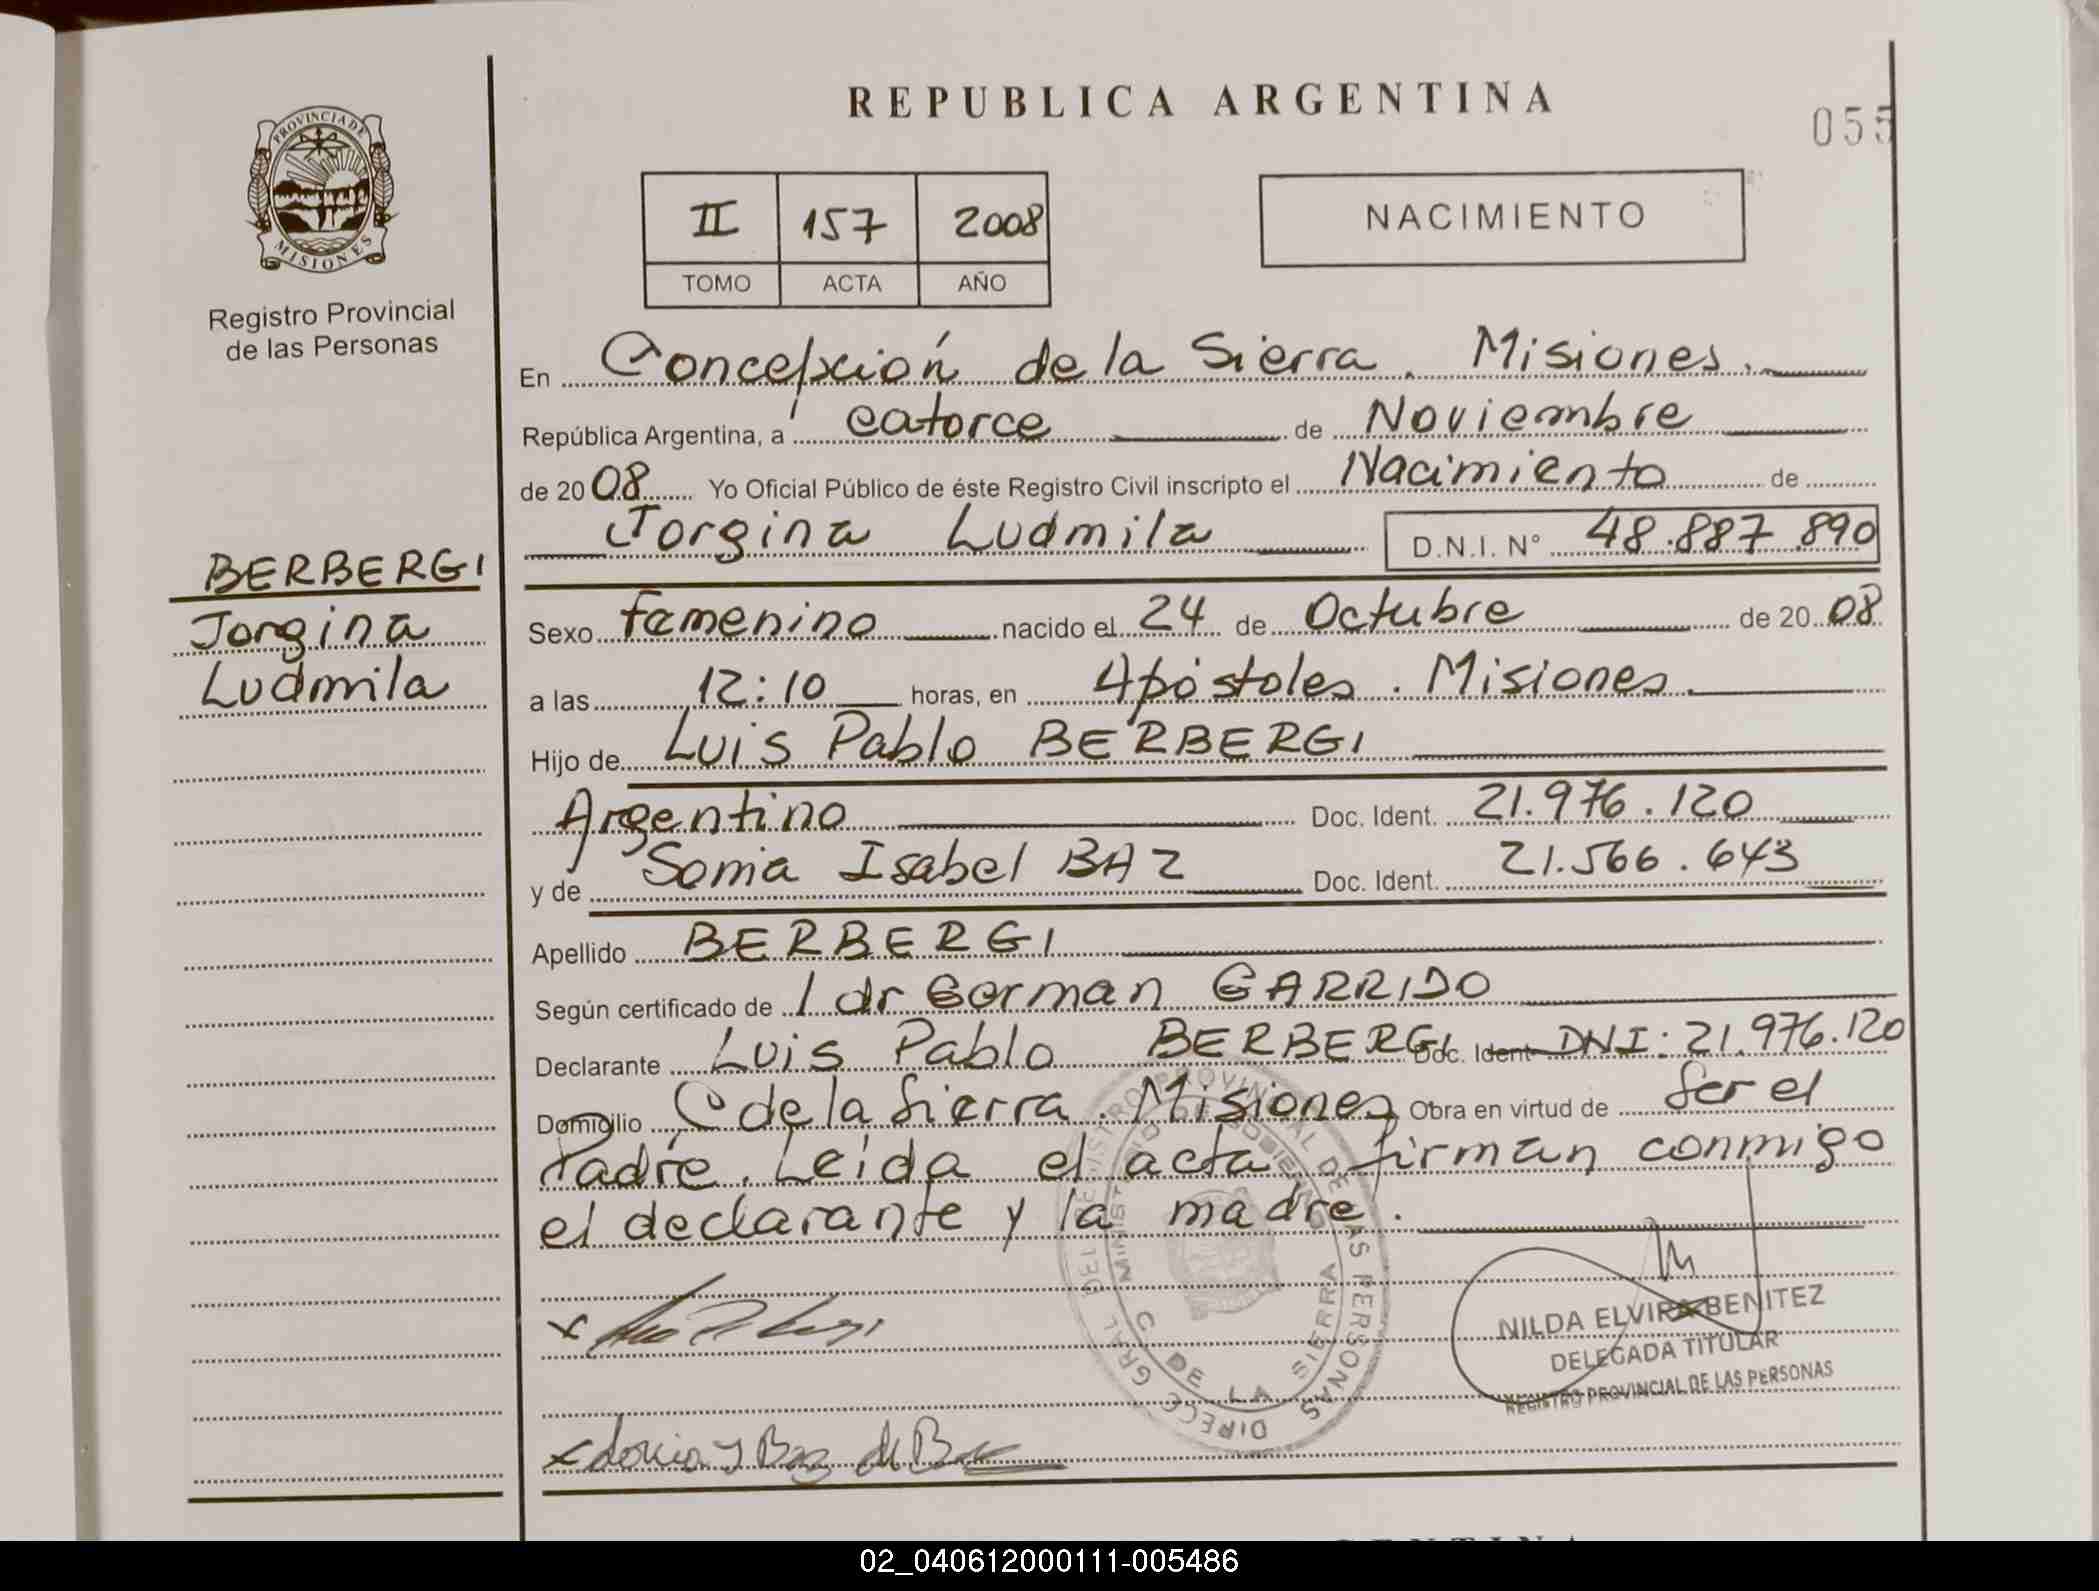 REPUBLICA ARGENTINA
055
PROVINCIA DE
MISIONES
Registro Provincial
de las Personas
II 157 2008
TOMO ACTA AÑO
NACIMIENTO
En Concepción de la Sierra. Misiones.
República Argentina, a catorce de Noviembre
de 2008 Yo Oficial Público de éste Registro Civil inscripto el Nacimiento de
Jorgina Ludmila D.N.I. N° 48.887.890
BERBERGI
Jorgina
Ludmila
Sexo femenino nacido el 24 de Octubre de 2008
a las 12:10 horas, en Apóstoles. Misiones.
Hijo de Luis Pablo BERBERGI
Argentino Doc. Ident. 21.976.120
y de Sonia Isabel BAZ Doc. Ident. 21.566.643
Apellido BERBERGI
Según certificado de l dr German GARRIDO
Declarante Luis Pablo BERBERGI Doc. Ident DNI: 21.976.120
Domicilio C de la Sierra. Misiones Obra en virtud de Ser el
Padre. Leída el acta firman conmigo
el declarante y la madre.
DIRECC GRAL DEL REGISTRO PROVINCIAL DE LAS PERSONAS
MINISTERIO DE GOBIERNO
C DE LA SIERRA
NILDA ELVIRA BENITEZ
DELEGADA TITULAR
REGISTRO PROVINCIAL DE LAS PERSONAS
x Sonia I Baz de
02_040612000111-005486